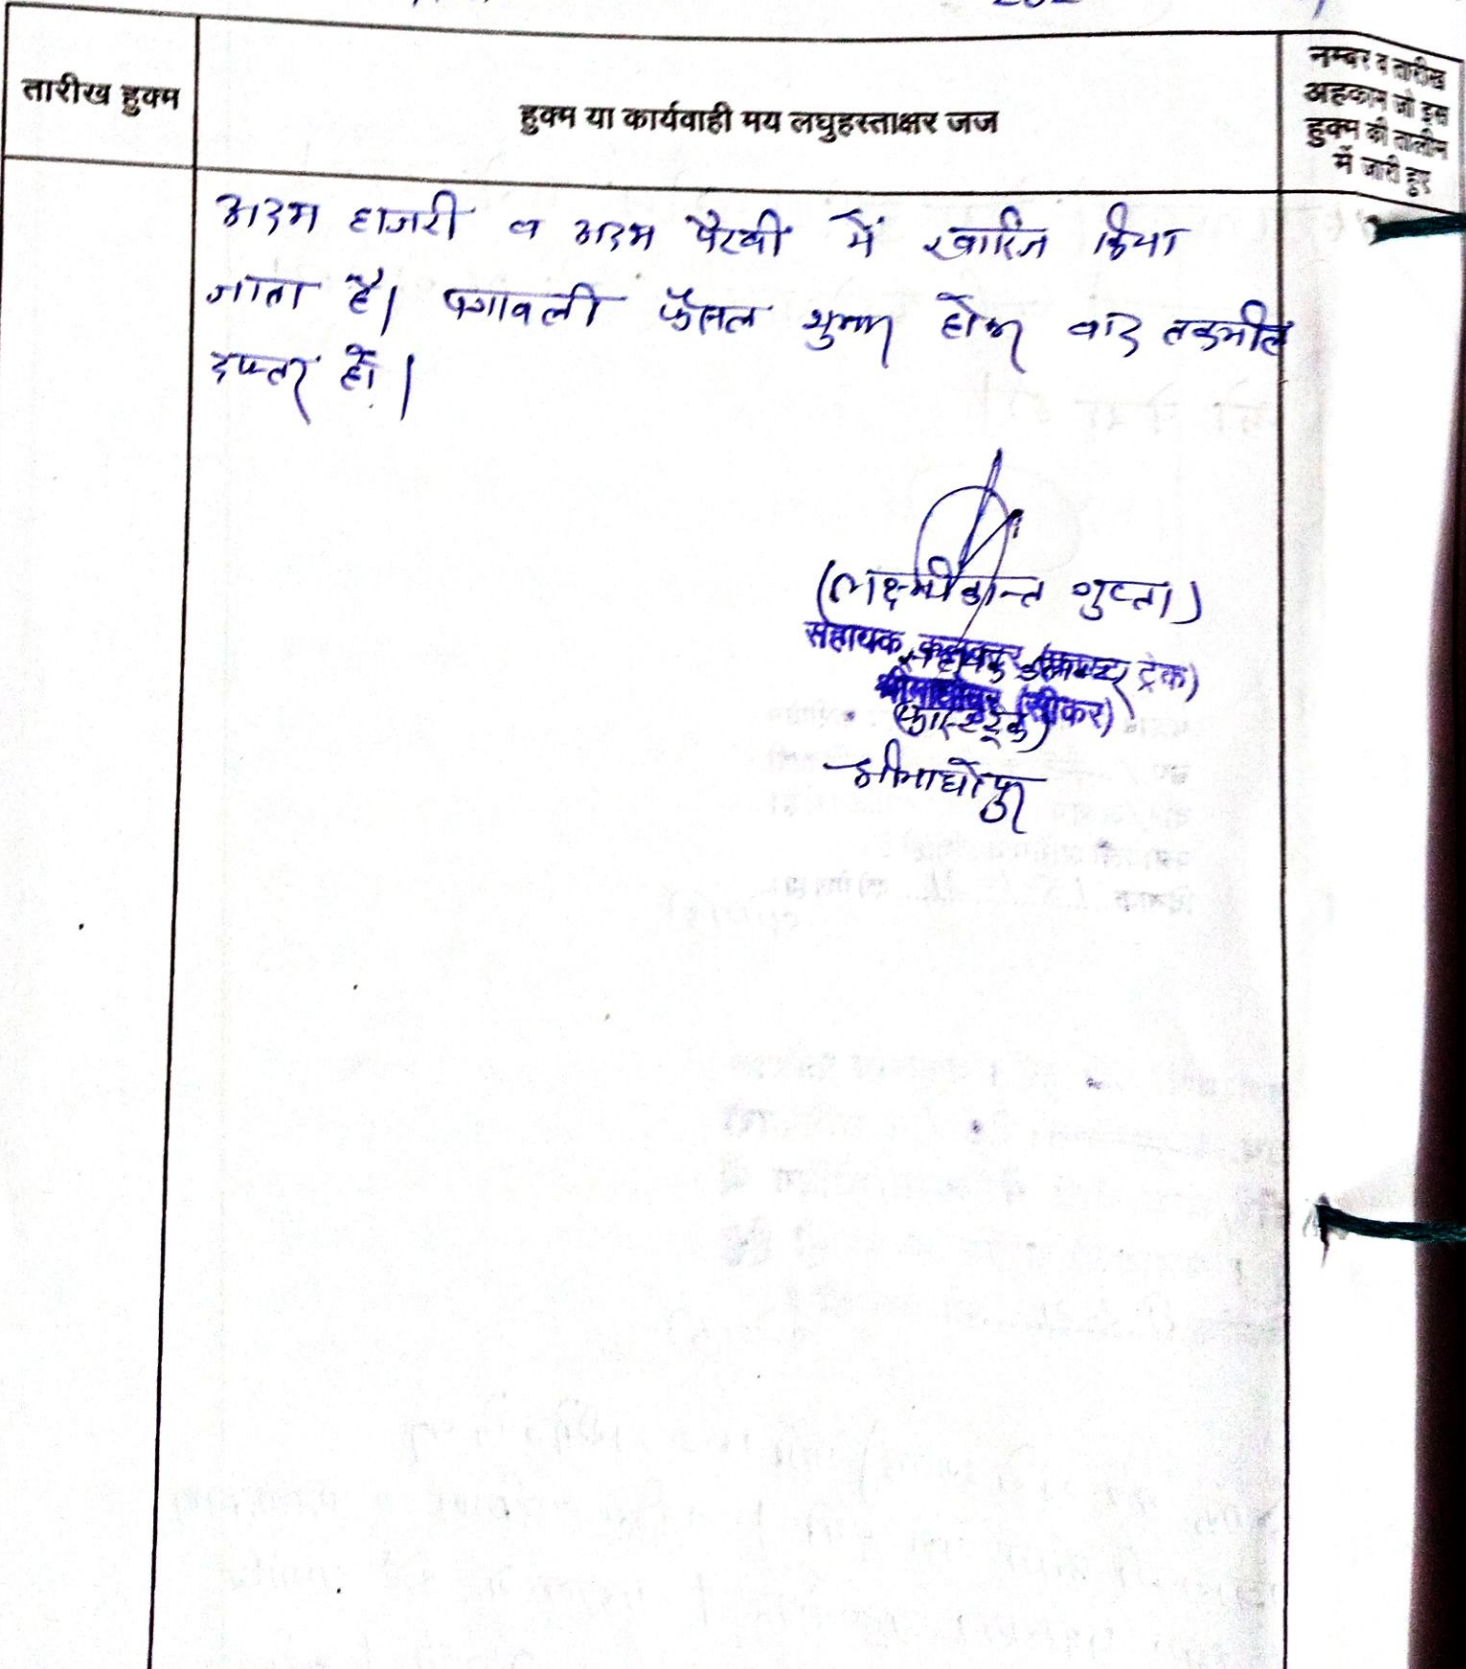 तारीख हुक्म
हुक्म या कार्यवाही मय लघुहस्ताक्षर जज
नम्बर व तारीख
अहकाम जो इस
हुक्म की तालीम
में जारी हुए
अदम हाजरी व अदम पैरवी में खारिज किया
जाता है। पत्रावली फैसल शुमार होकर बाद तकमील
दफ्तर हो।
(लक्ष्मीकान्त गुप्ता)
सहायक कलक्टर (फास्ट ट्रेक)
श्रीमाधोपुर (सीकर)
सहायक कलक्टर
(फास्ट ट्रेक)
श्रीमाधोपुर